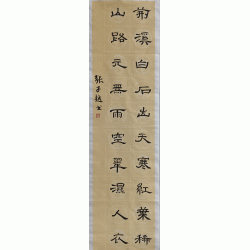 荊溪白石出天寒紅葉稀
山路元無雨空翠濕人衣